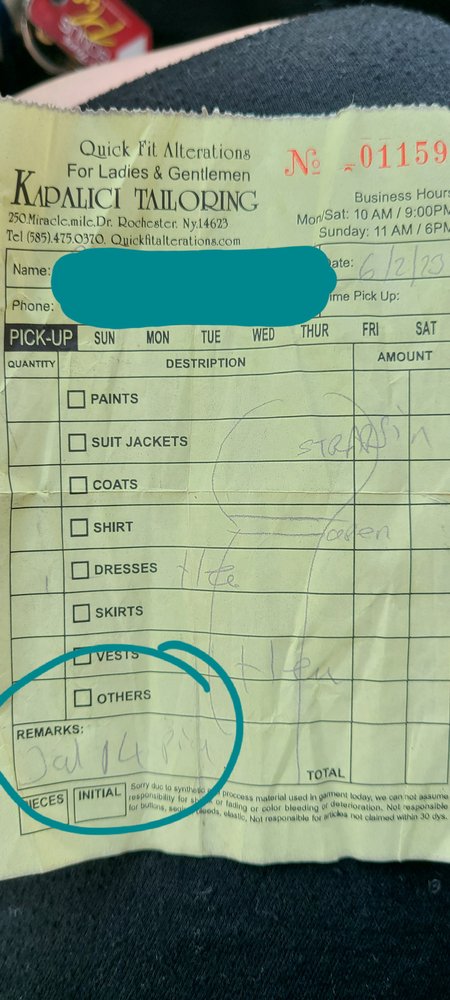 Quick Fit Alterations
For Ladies & Gentlemen
KAPALICI TAILORING
250.Miracle.mile.Dr. Rochester. Ny.14623
Tel (585).475.0370. Quickfitalterations.com
№ 01159
Business Hours
Mon/Sat: 10 AM / 9:00PM
Sunday: 11 AM / 6PM
Name:
ate: 6/2/23
Phone:
ime Pick Up:
PICK-UP SUN MON TUE WED THUR FRI SAT
QUANTITY DESTRIPTION AMOUNT
PAINTS
SUIT JACKETS
COATS
SHIRT
1 DRESSES
SKIRTS
VESTS
OTHERS
REMARKS:
14
TOTAL
IECES INITIAL
Sorry duo to synthetic process material used in garment today, we can not assume
responsibility for or fading or color bleeding or deterioration. Not responsible
for buttons, beeds, elastic, Not responsible for articles not claimed within 30 dys.